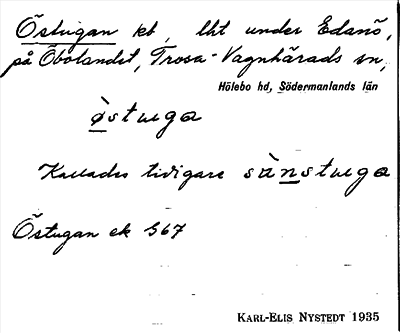 Östugan kt, lht under Edanö,
på Öbolandet, Trosa-Vagnhärads sn,
Hölebo hd, Södermanlands län
ø̀stuga
Kallades tidigare sànstuga
Östugan ek 567
KARL-ELIS NYSTEDT 1935